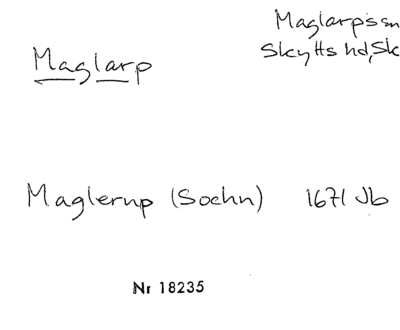 Maglarp
Maglarps sn
Skytts hd, Sk
Maglerup (Sochn) 1671 Jb
Nr 18235